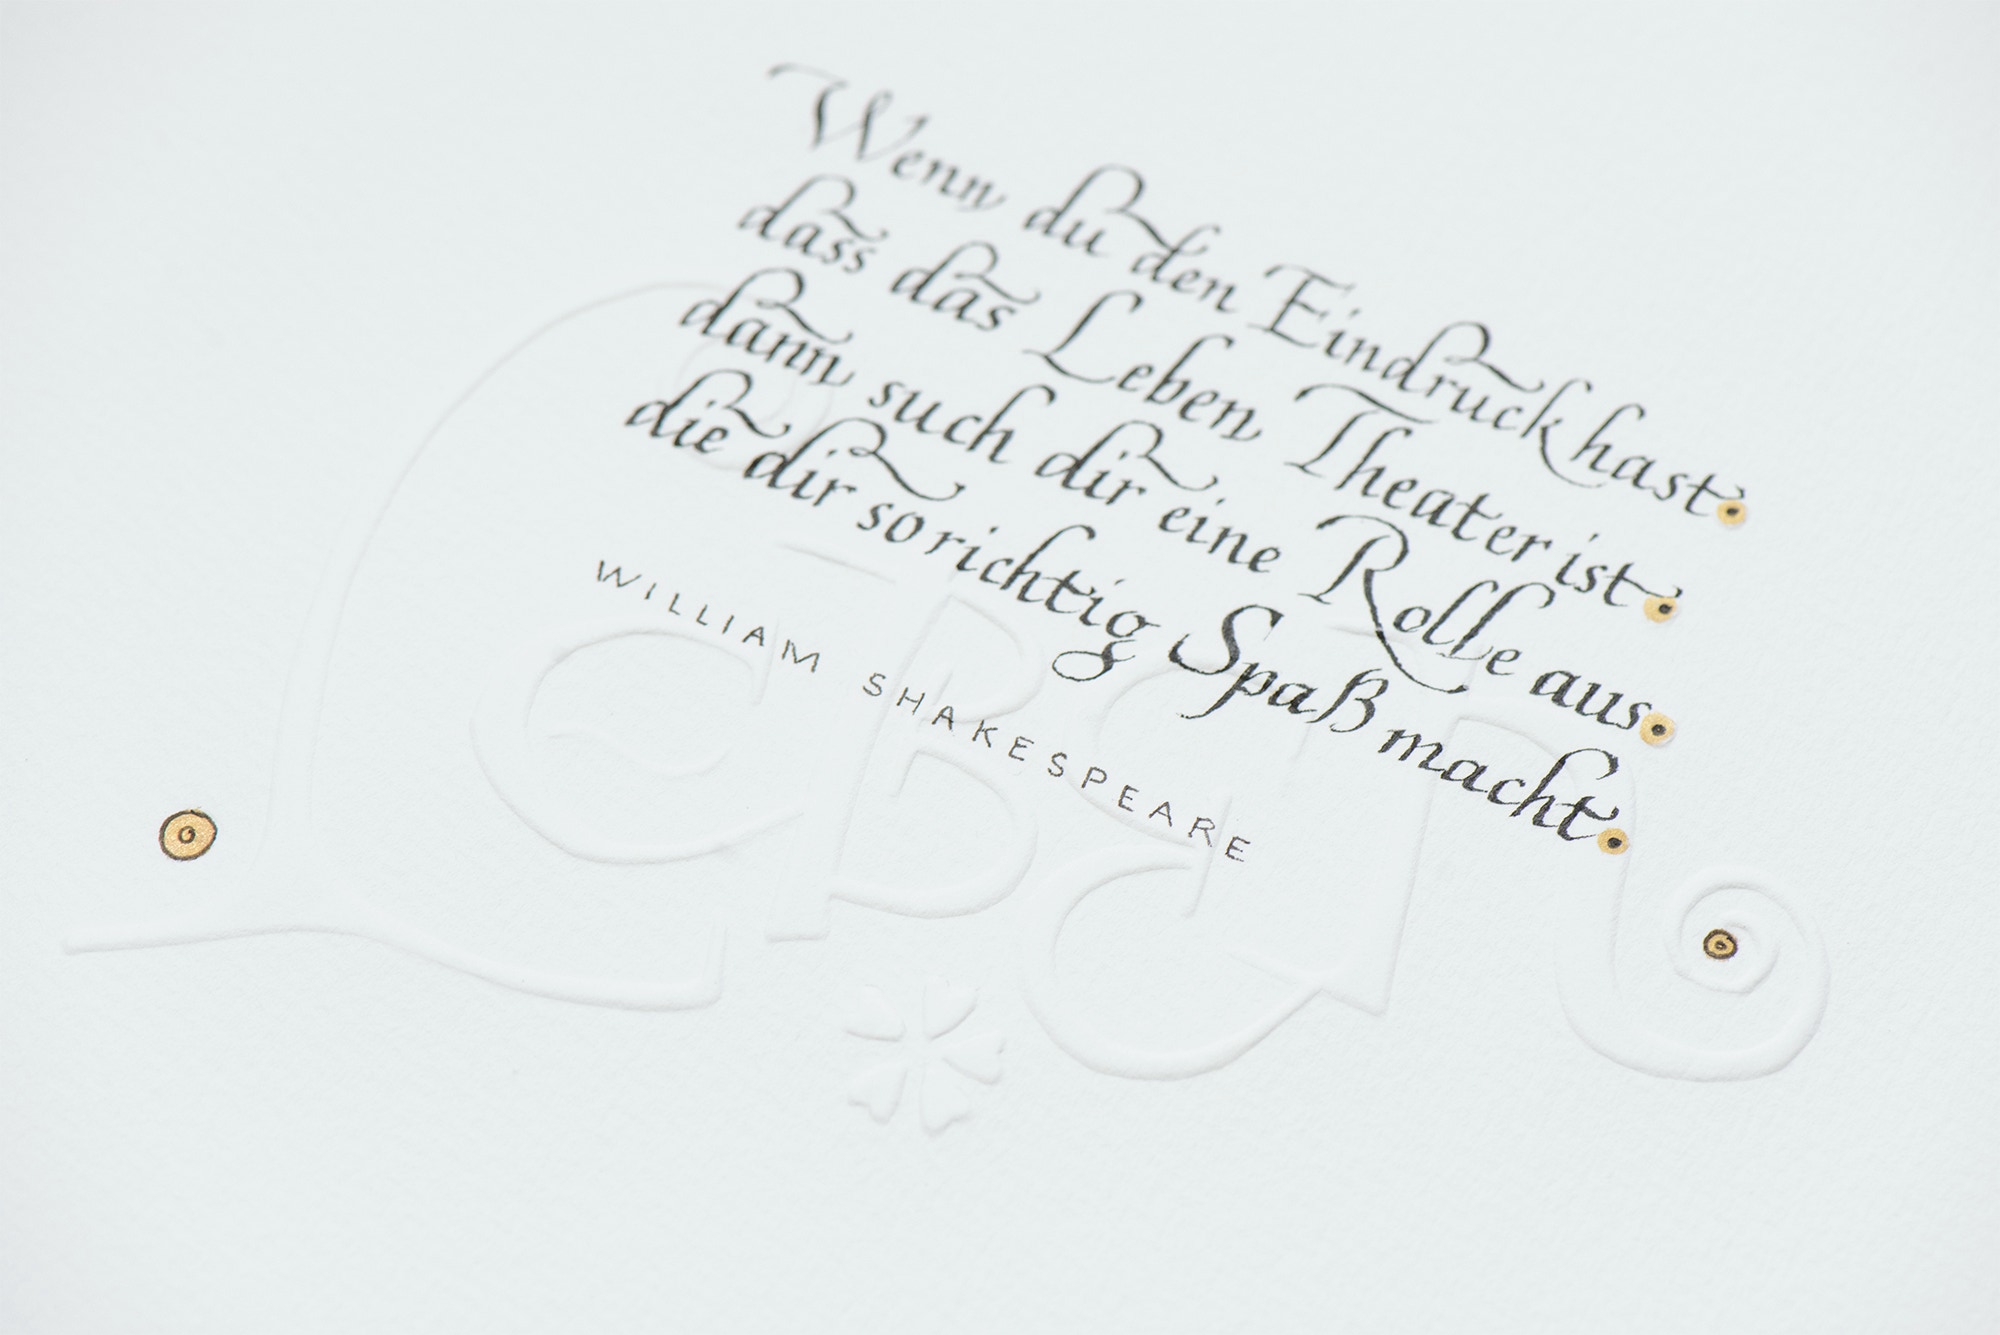 Wenn du den Eindruck hast.
dass das Leben Theater ist.
dann such dir eine Rolle aus.
die dir so richtig Spaß macht.
WILLIAM SHAKESPEARE
Leben